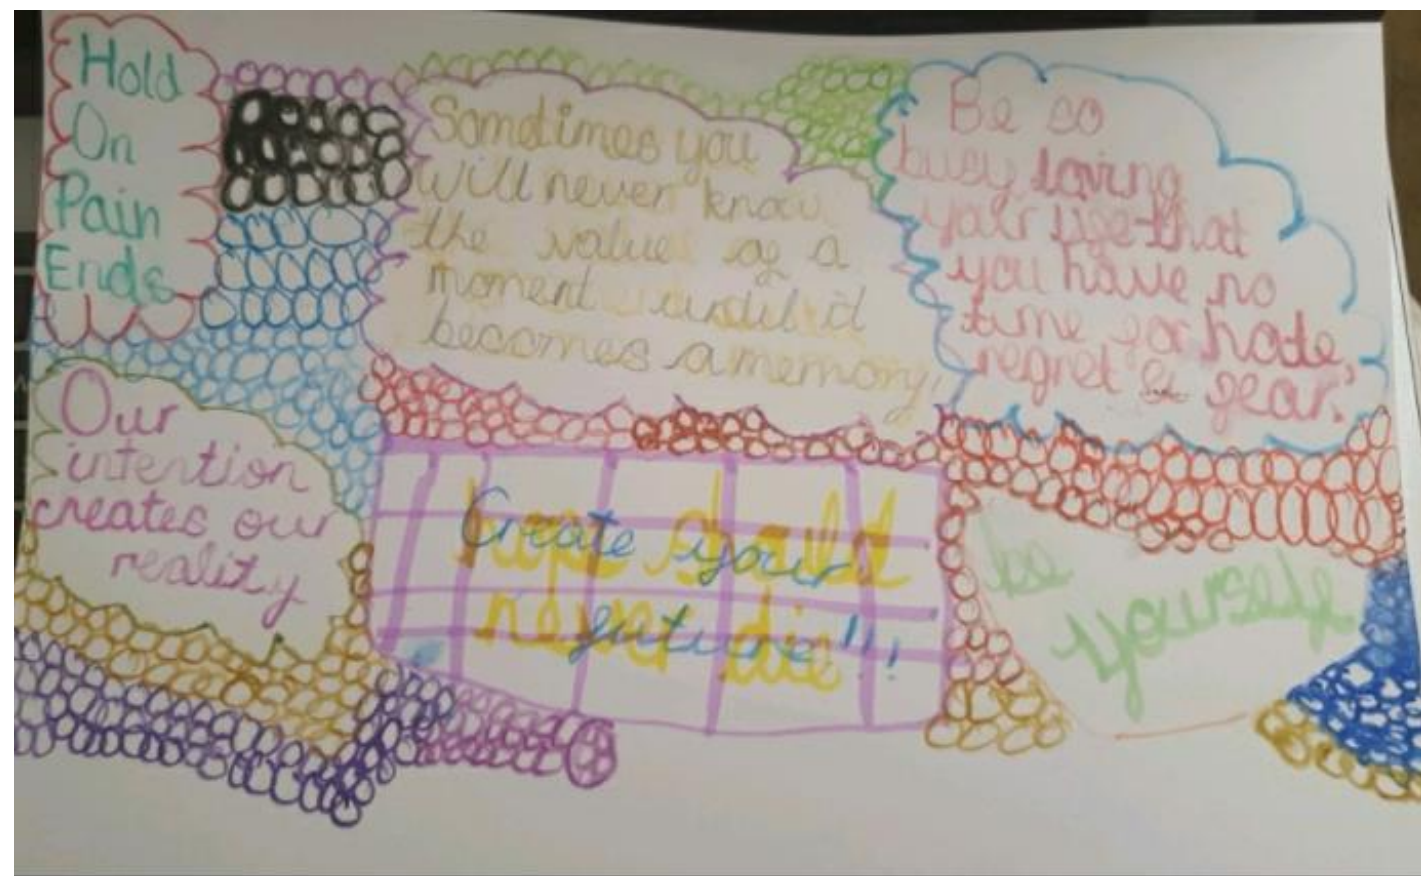 Hold
On
Pain
Ends
Sometimes you
will never know
the value of a
moment until it
becomes a memory.
Be so
busy loving
your life that
you have no
time for hate,
regret & fear.
Our
intention
creates our
reality
hope should
never die
Create your
future!!!
be
yourself